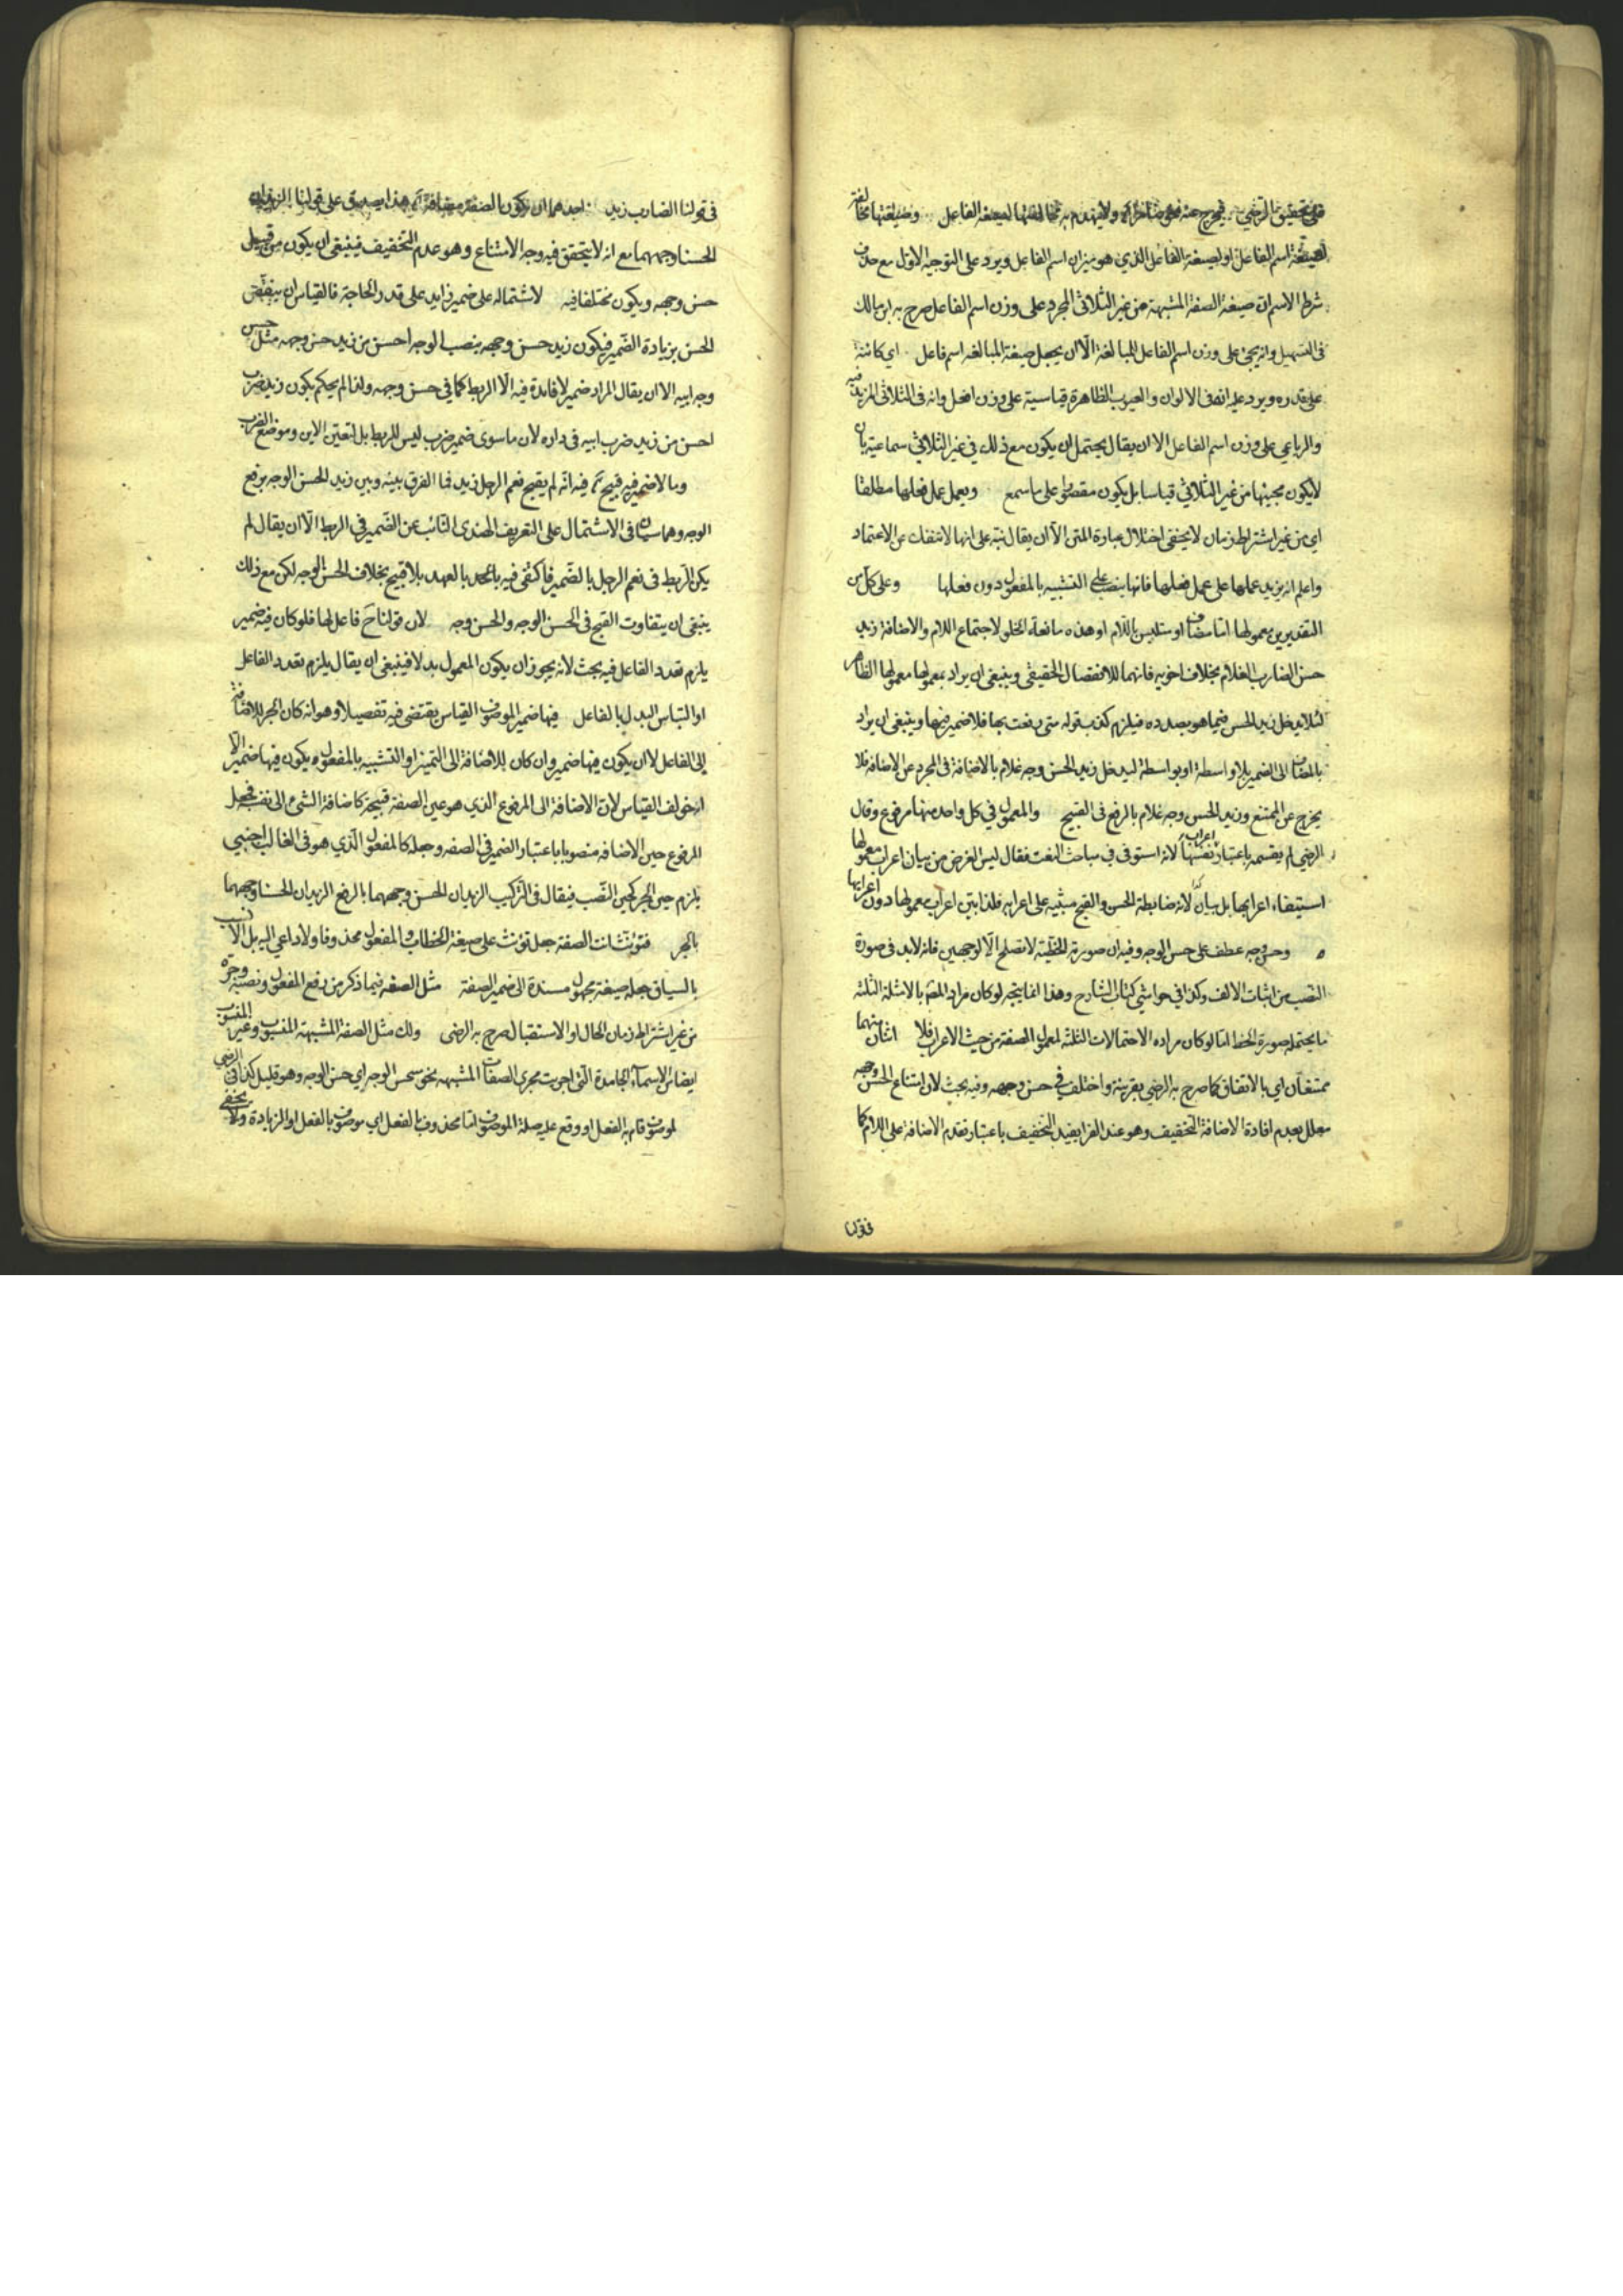 على تحقيق الرضي فيخرج عنه ولا يتهدم به مخالفتها لصيغة الفاعل وصيغتها مخالفة
لصيغة اسم الفاعل او لصيغة الفاعل الذي هو ميزان اسم الفاعل ويرد على التوجيه الاول مع حذف
شرط الاسم ان صيغة الصفة المشبهة من غير الثلاثي المجرد على وزن اسم الفاعل صرح به ابن مالك
في التسهيل وانه يجئ على وزن اسم الفاعل للمبالغة الا ان يجعل صيغة المبالغة اسم فاعل اي كائنة
على قدره ويرد عليه انه في الالوان والعيوب الظاهرة قياسية على وزن افعل وانه في الثلاثي المزيد فيه
والرباعي على وزن اسم الفاعل الا ان يقال يحتمل ان يكون مع ذلك في غير الثلاثي سماعية بان
لا يكون مجيئها من غير الثلاثي قياسا بل يكون مقصورا على ما سمع وتعمل عمل فعلها مطلقا
اي من غير اشتراط زمان لا يخفى اختلال عبارة المتن الا ان يقال نبه على انها لا تنفك عن الاعتماد
واعلم انه يزيد عملها على عمل فعلها فانها ينصب على التشبيه بالمفعول دون فعلها وعلى كل من
التقديرين معمولها اما مضاف او متلبس باللام او هذه مانعة الخلو لاجتماع اللام والاضافة زيد
حسن الضارب الغلام بخلاف اخويه فانهما للانفصال الحقيقي وينبغي ان يراد بمعمولها معمولها الظاهر
لئلا يدخل زيد الحسن فيما هو بصدده فيلزم كذب قوله متى رفعت بها فلا ضمير فيها وينبغي ان يراد
بالمضاف الى الضمير بلا واسطة او بواسطة ليدخل زيد الحسن وجه غلام بالاضافة في المجرد عن الاضافة فلا
يخرج عن الممتنع وزيد الحسن وجه غلام بالرفع في القبيح والمعمول في كل واحد منها مرفوع وقال
الرضي لم يقسمه باعتبار اعراب نفسها لانه استوفى في مباحث النعت فقال ليس الغرض من بيان اعراب معمولها
استيفاء اعرابها بل بيان لانه ضابطة الحسن والقبح مبنية على اعرابه فلذا بين اعراب معمولها دون اعرابها
وحسن وجه عطف على حسن الوجه وفيه ان صورته الخطية لا تصلح الا لوجهين فانه لا بد في صورة
النصب من اثبات الالف وكذا في حواشي كتاب الشارح وهذا انما يتجه لو كان مراد المص بالامثلة الثلثة
ما يحتمله صورة الخط اما لو كان مراده الاحتمالات الثلثة لمعمول الصفة من حيث الاعراب فلا اثنان منهما
ممتنعان اي بالاتفاق كما صرح به الرضي بقرينة واختلف في حسن وجهه وفيه بحث لان امتناع الحسن وجهه
معلل بعدم افادة الاضافة التخفيف وهو عند الفرا يفيد التخفيف باعتبار تقدم الاضافة على اللام كما
في قولنا
في قولنا الضارب زيد احدهما ان يكون الصفة مضافة هذا يصدق على قولنا الزيدان
الحسنا وجههما مع انه لا يتحقق فيه وجه الامتناع وهو عدم التخفيف فينبغي ان يكون من قبيل
حسن وجهه ويكون مختلفا فيه لاشتماله على ضمير زايد على قدر الحاجة فالقياس ان ينقض
الحسن بزيادة الضمير فيكون زيد حسن وجهه بنصب الوجه احسن من زيد حسن وجهه مثل حسن
وجه ابيه الا ان يقال المراد ضمير لا فائدة فيه الا الربط كما في حسن وجهه ولذا لم يحكم بكون زيد ضرب
احسن من زيد ضرب ابيه في داره لان ما سوى ضمير ضرب ليس للربط بل لتعين الاين وموضع الضرب
وما لا ضمير فيه قبيح فيه انه لم يقبح نعم الرجل زيد فما الفرق بينه وبين زيد الحسن الوجه برفع
الوجه وهما سيان في الاشتمال على التعريف العهدي النائب عن الضمير في الربط الا ان يقال لم
يكن الربط في نعم الرجل بالضمير فاكتفى فيه بالعهد بلا قبيح بخلاف الحسن الوجه لكن مع ذلك
ينبغي ان يتفاوت القبح في الحسن الوجه والحسن وجه لان قولنا ح فاعل لها فلو كان فيه ضمير
يلزم تعدد الفاعل فيه بحث لانه يجوز ان يكون المعمول بدلا فينبغي ان يقال يلزم تعدد الفاعل
او التباس البدل بالفاعل فيها ضمير الموصوف القياس يقتضي فيه تفصيلا وهو انه كان الجر للاضافة
الى الفاعل لا ان يكون فيها ضمير وان كان للاضافة الى التمييز او التشبيه بالمفعول يكون فيها ضمير الا
انه خولف القياس لان الاضافة الى المرفوع الذي هو عين الصفة قبيحة كاضافة الشئ الى نفسه فجعل
المرفوع حين الاضافة منصوبا باعتبار الضمير في الصفه وجعله كالمفعول الذي هو في الغالب اجنبي
يلزم حين الجر كحين النصب فيقال في التركيب الزيدان الحسن وجههما بالرفع الزيدان الحسنا وجههما
بالجر فتؤنث تانث الصفة جعل تؤنث على صيغة الخطاب والمفعول محذوفا ولا داعي اليه بل الانسب
بالسياق جعله صيغة مجهول مسندة الى ضمير الصفة مثل الصفه فيما ذكر من رفع المفعول ونصبه وجره
من غير اشتراط زمان الحال او الاستقبال صرح به الرضى ولك مثل الصفة المشبهة المنسوب وغير المنسوب
ايضا من الاسماء الجامدة التي اجريت مجرى الصفات المشبهه نحو شمس الوجه اي حسن الوجه وهو قليل كذا في الرضي
لموصوف قام به الفعل او وقع عليه صلة الموصوف اما محذوف بالفعل اي موصوف بالفعل او الزيادة ولا يخفى